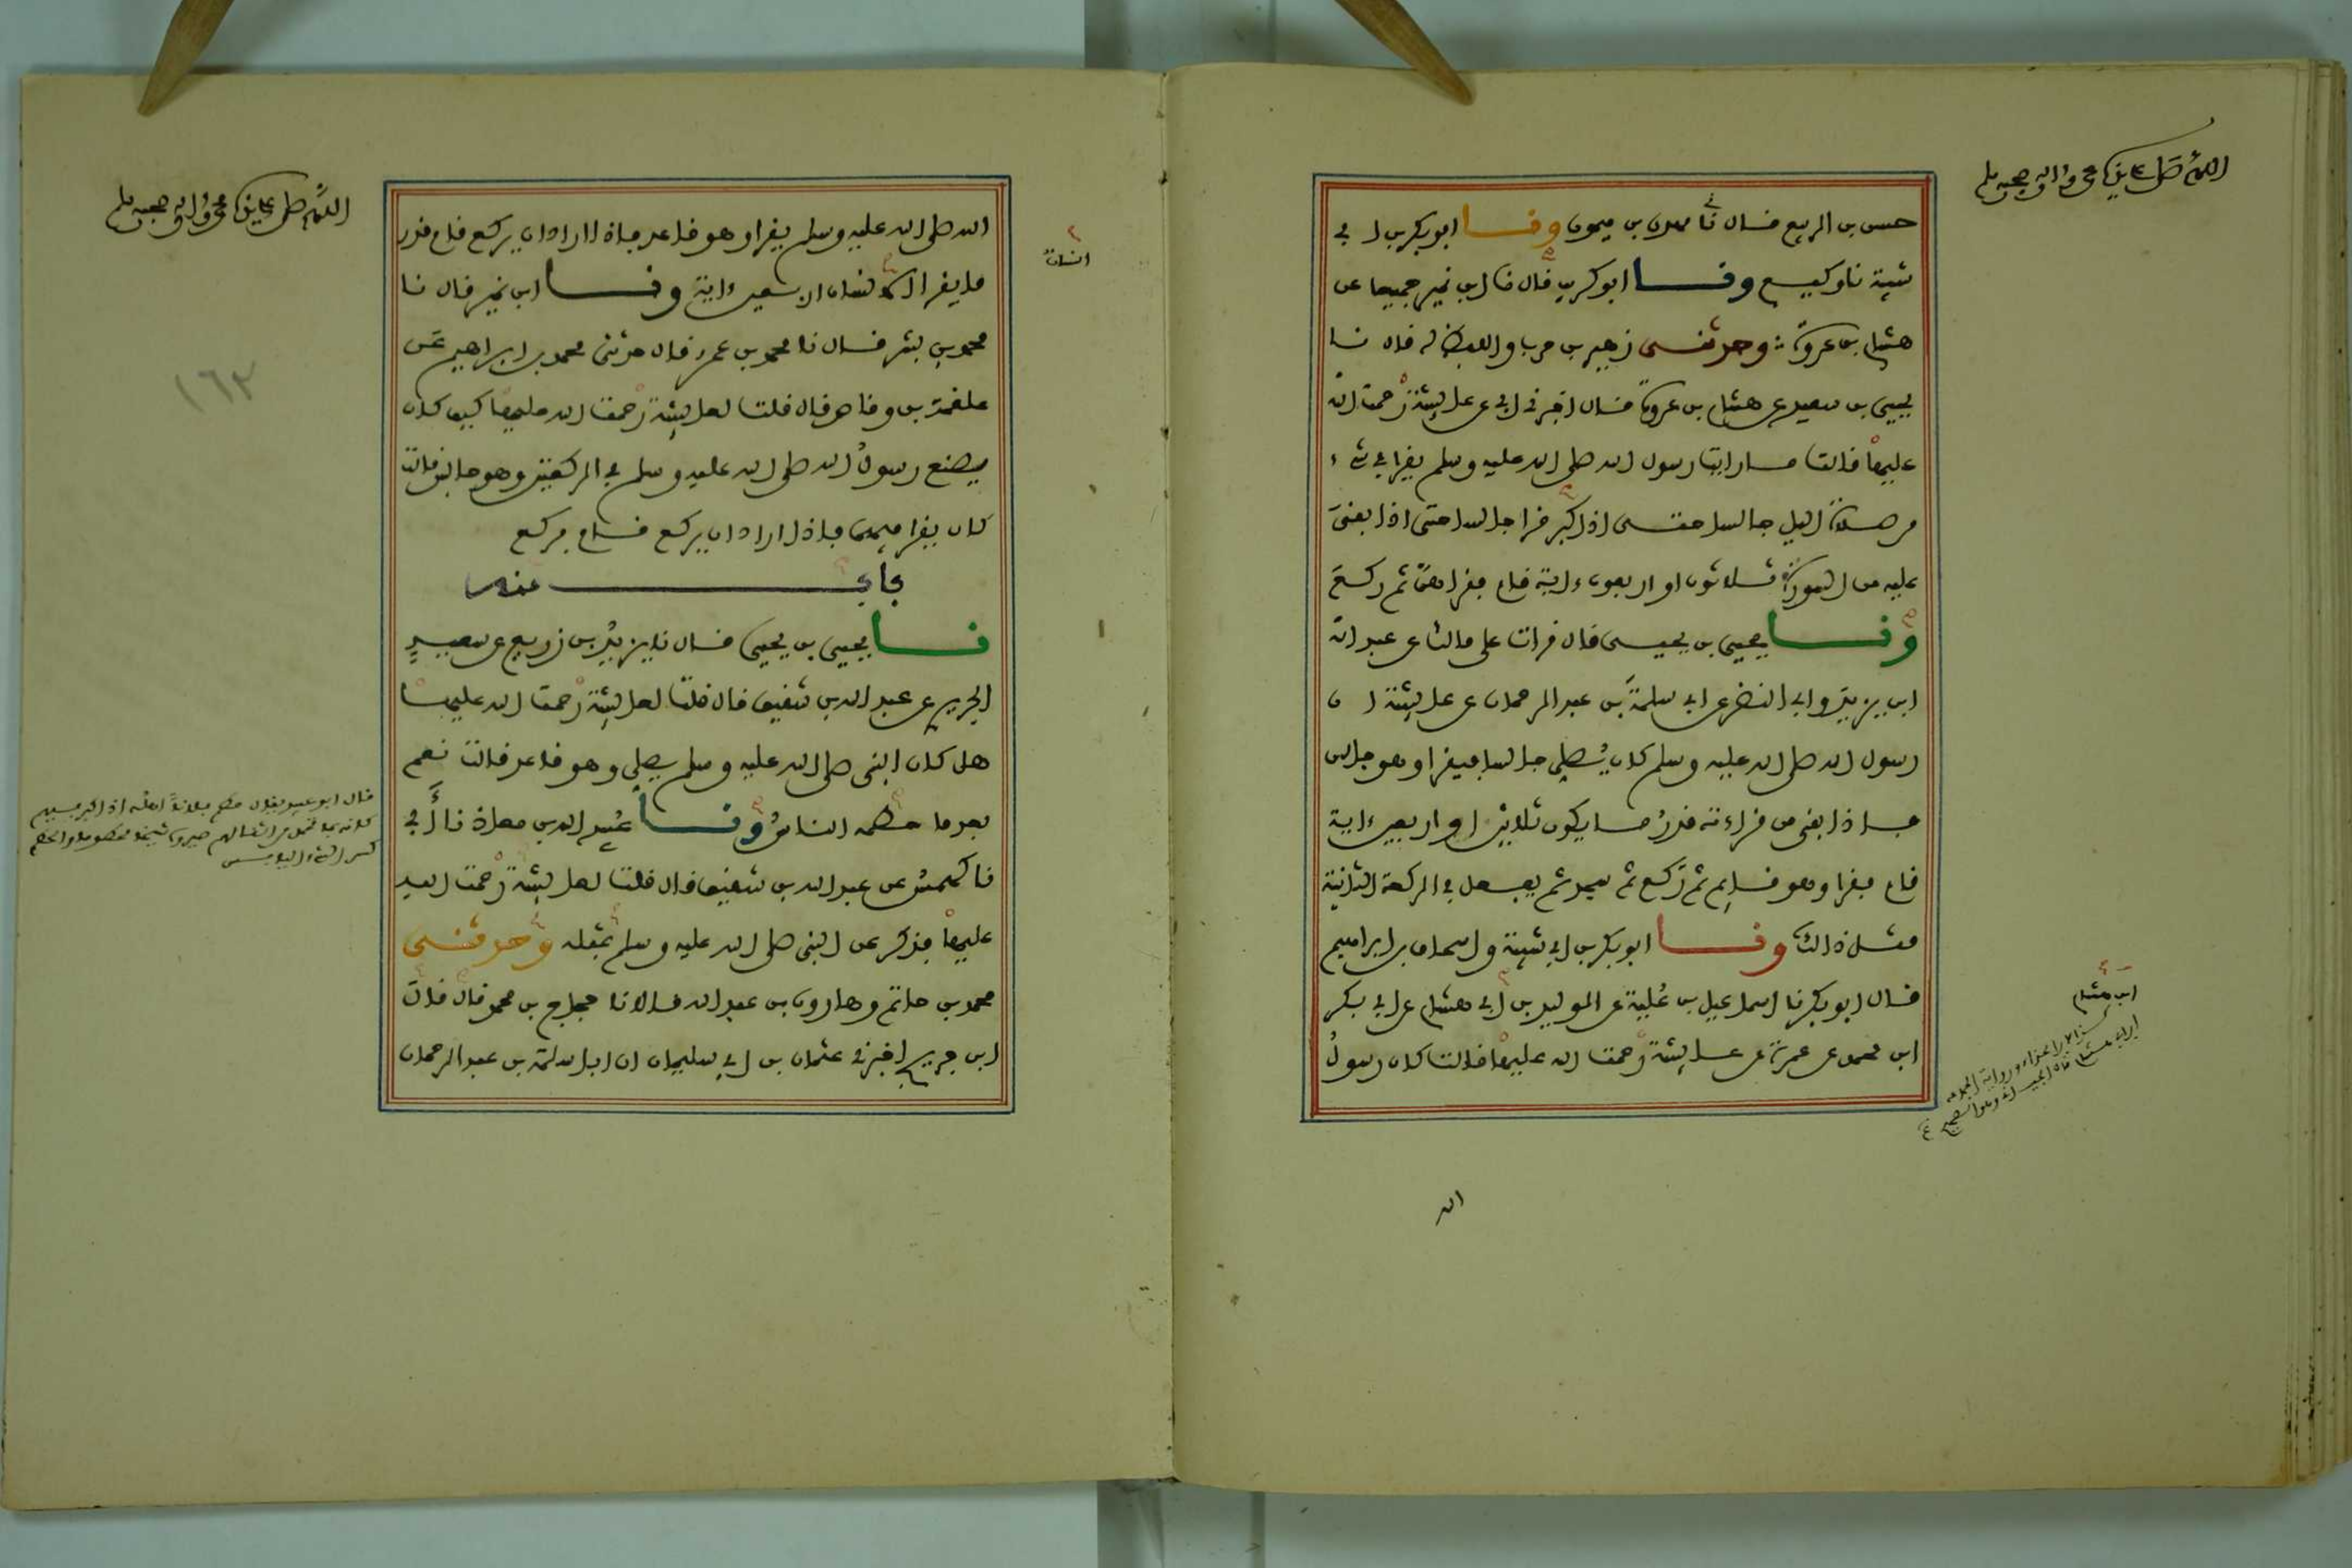 اللهم صل على نبينا محمد وآله وصحبه وسلم
حسن بن الربيع قال نا مهدي بن ميمون ونا ابو بكر بن ابي
شيبة نا وكيع ونا ابو كريب قال نا ابن نمير جميعا عن
هشام بن عروة وحدثني زهير بن حرب واللفظ له قال نا
يحيى بن سعيد عن هشام بن عروة قال اخبرني ابي عن عايشة رحمت الله
عليها قالت ما رايت رسول الله صلى الله عليه وسلم يقرا في شيء
من صلاة اليل جالسا حتى اذا كبر قرا جالسا حتى اذا بقى
عليه من السورة ثلاثون او اربعون ءاية قام فقراهن ثم ركع
ونا يحيى بن يحيى قال قرات على مالك عن عبد الله
ابن يزيد وابي النضر عن ابي سلمة بن عبد الرحمان عن عايشة ان
رسول الله صلى الله عليه وسلم كان يصلي جالسا فيقرا وهو جالس
فاذا بقى من قراءته قدر ما يكون ثلاثين او اربعين ءاية
قام فقرا وهو قايم ثم ركع ثم سجد ثم يفعل في الركعة الثانية
مثل ذالك ونا ابو بكر بن ابي شيبة واسحاق بن ابراهيم
قال ابو بكر نا اسماعيل بن علية عن الوليد بن ابي هشام عن ابي بكر
ابن محمد عن عمرة عن عايشة رحمت الله عليها قالت كان رسول
ابن هشام
الله
اللهم صل على نبينا محمد وآله وصحبه وسلم
الله صلى الله عليه وسلم يقرا وهو قاعد فاذا اراد ان يركع قام قدر
ما يقرا انسان اربعين ءاية ونا ابن نمير قال نا
انسان
محمد بن بشر قال نا محمد بن عمرو قال حدثني محمد بن ابراهيم عن
علقمة بن وقاص قال قلت لعايشة رحمت الله عليها كيف كان
يصنع رسول الله صلى الله عليه وسلم في الركعتين وهو جالس قالت
كان يقرا فيهما فاذا اراد ان يركع قام فركع
باب منه
نا يحيى بن يحيى قال نا يزيد بن زريع عن سعيد
الجريري عن عبد الله بن شقيق قال قلت لعايشة رحمت الله عليها
هل كان النبي صلى الله عليه وسلم يصلي وهو قاعد قالت نعم
بعد ما حطمه الناس ونا عبيد الله بن معاذ نا أبي
نا كهمس عن عبد الله بن شقيق قال قلت لعايشة رحمت الله
عليها فذكر عن النبي صلى الله عليه وسلم بمثله وحدثني
محمد بن حاتم وهارون بن عبد الله قالا نا حجاج بن محمد قال قال
ابن جريج اخبرني عثمان بن ابي سليمان ان ابا سلمة بن عبد الرحمان
١٦٢